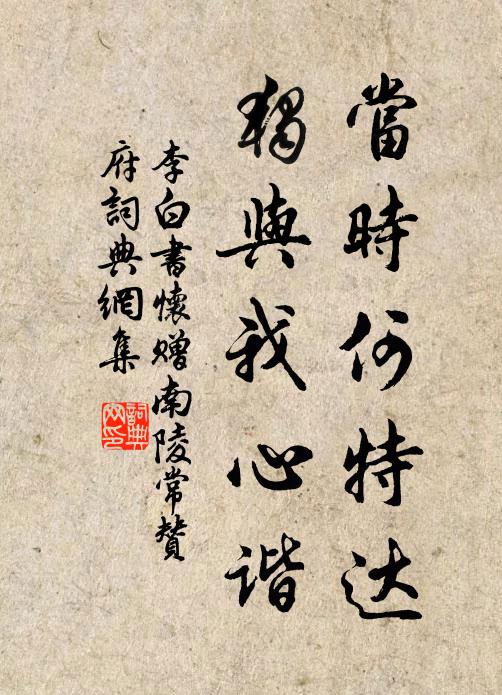 當時何特达
獨與我心谐
李白書懷贈南陵常赞
府詞典網集
詞典
网印